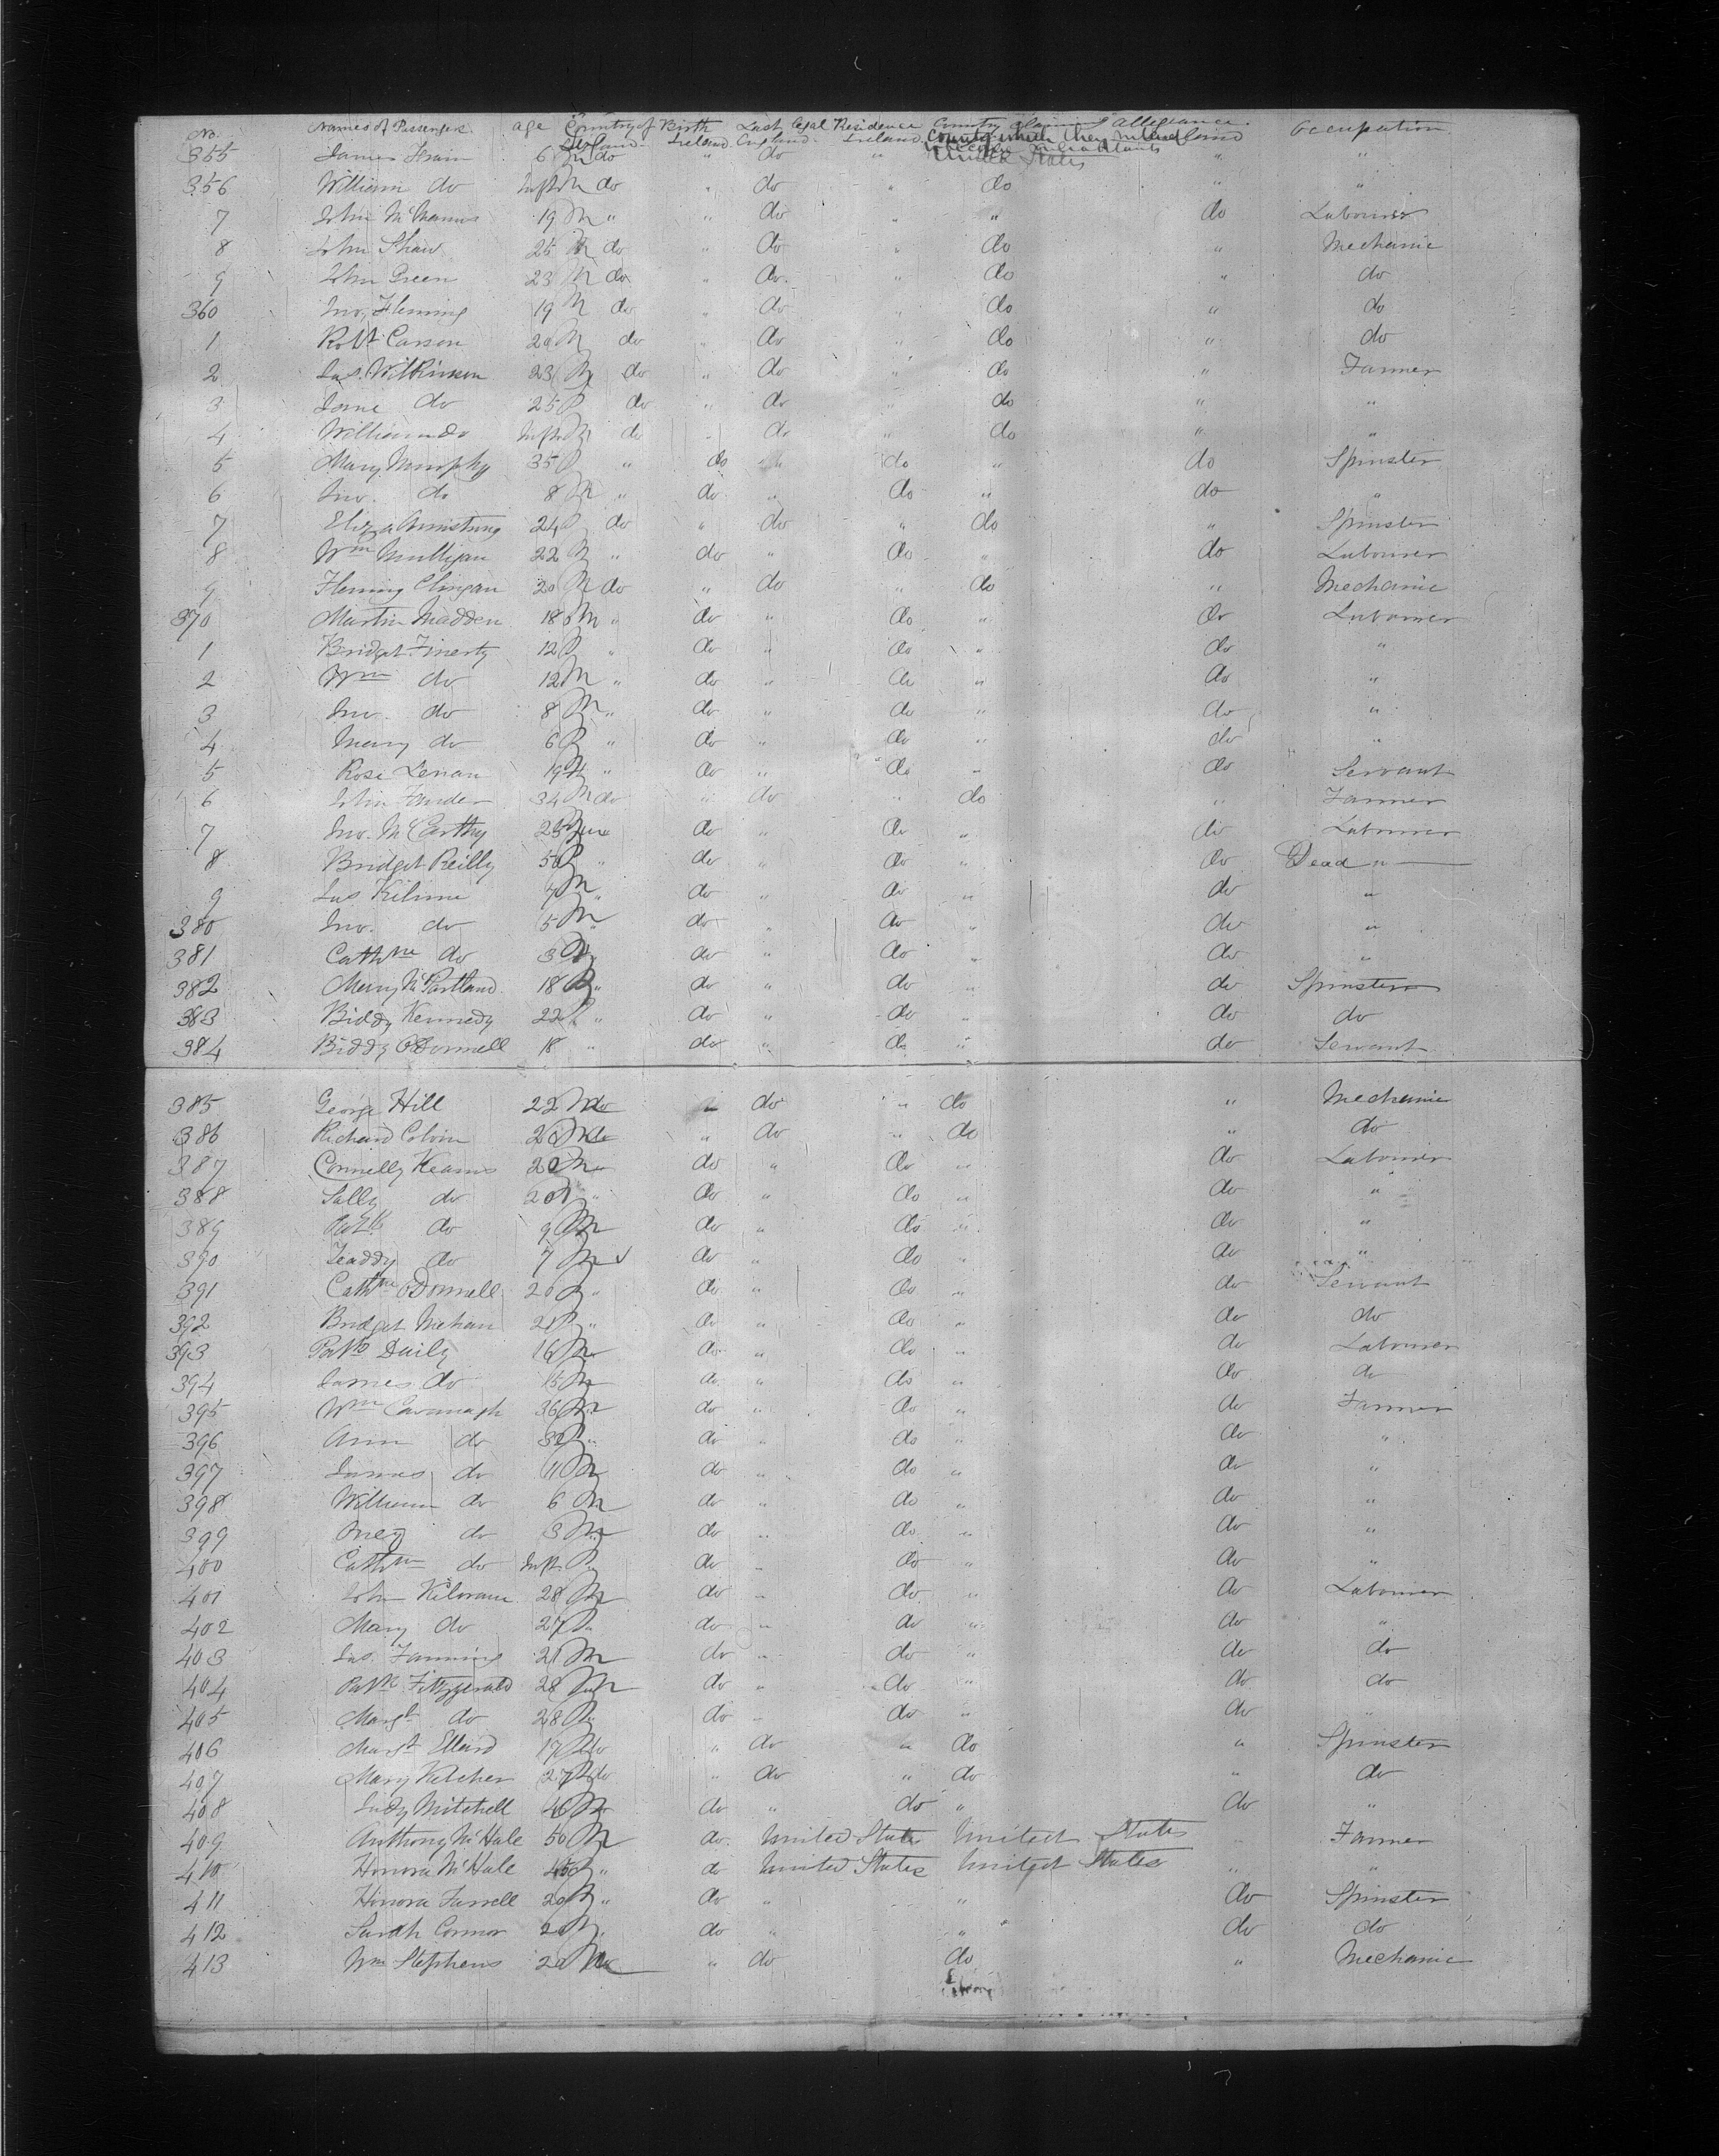 No. Names of Passengers. age Country of Birth Last legal Residence Country claiming allegiance. Occupation
Ireland England Ireland Country which they intend
inhabitants
355 James 6 M do " do " United States " "
356 William do Inft M do " do " do " "
7 John McManus 19 M " " do " " do Labourer
8 John Shaw 25 M do " do " do " Mechanic
9 John Green 23 M do " do " do " do
360 Jno. Fleming 19 M do " do " do " do
1 Robt Carson 20 M do " do " do " do
2 Jas. Wilkinson 23 M do " do " do " Farmer
3 Jane do 25 F do " do " do " "
4 William do Inft M do " do " do " "
5 Mary Murphy 35 F " do " do " do Spinster
6 Jno. do 8 M " do " do " do "
7 Eliza Armstrong 24 F do " do " do " Spinster
8 Wm Mulligan 22 M " do " do " do Labourer
9 Fleming Clingan 20 M do " do " do " Mechanic
370 Martin Madden 18 M " do " do " do Labourer
1 Bridget Finerty 12 F " do " do " do "
2 Wm do 12 M " do " do " do "
3 Jno. do 8 M " do " do " do "
4 Mary do 6 F " do " do " do "
5 Rose Lenan 19 F " do " do " do Servant
6 John 34 M do " do " do " Farmer
7 Jno. McCarthy 25 M do " do " do Labourer
8 Bridget Reilly 50 F " do " do " do Dead "
9 Jas 7 M " do " do " do "
380 Jno. do 5 M " do " do " do "
381 Cathne do 3 F do " do " do "
382 Mary McPartland 18 F " do " do " do Spinster
383 Biddy Kennedy 22 F " do " do " do do
384 Biddy O'Donnell 18 " do " do " do Servant
385 George Hill 22 M do " do " do " Mechanic
386 Richard Colvin 20 M do " do " do " do
387 Connelly Keams 20 M do " do " do Labourer
388 Sally do 20 F " do " do " do "
389 Patk do 9 M do " do " do "
390 Teaddy do 7 M do " do " do "
391 Cathne O'Donnell 20 F " do " do " do Servant
392 Bridget Mehan 21 F " do " do " do do
393 Patk Daily 16 M do " do " do Labourer
394 James do 15 M do " do " do do
395 Wm Cavanagh 36 M do " do " do Farmer
396 Ann do 32 F " do " do " do "
397 James do 11 M do " do " do "
398 William do 6 M do " do " do "
399 do 3 M do " do " do "
400 Cathne do Inft. F do " do " do "
401 John Kilorann 28 M do " do " do Labourer
402 Mary do 27 F do " do " do "
403 Jas. Fanning 21 M do " do " do do
404 Patk Fitzgerald 28 M do " do " do do
405 Margt do 28 F do " do " do "
406 Margt Ellard 17 F do " do " do " Spinster
407 Mary Kelcher 27 F do " do " do " do
408 Judy Mitchell 46 F do " do " do "
409 Anthony McHale 50 M do United States United States " Farmer
410 Honora McHale 45 F " do United States United States " "
411 Honora Farrell 20 F " do " " do Spinster
412 Sarah Connor 20 F do " " do do
413 Wm Stephens 20 M " do do " Mechanic